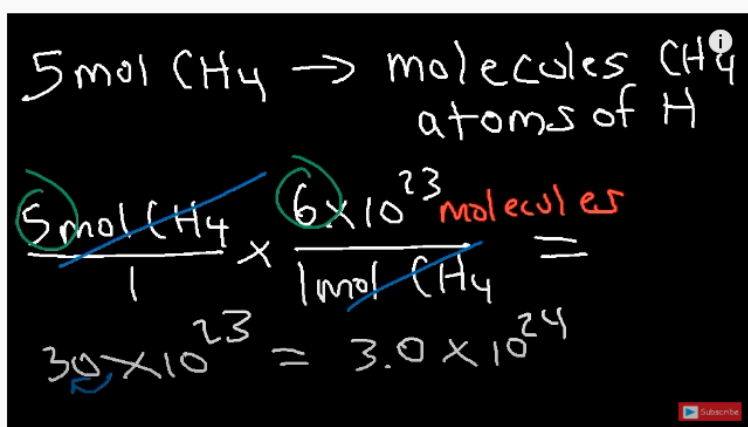 5 mol CH4 → molecules CH4
atoms of H
5 mol CH4 / 1 × 6 × 10^23 molecules / 1 mol CH4 =
30 × 10^23 = 3.0 × 10^24
Subscribe